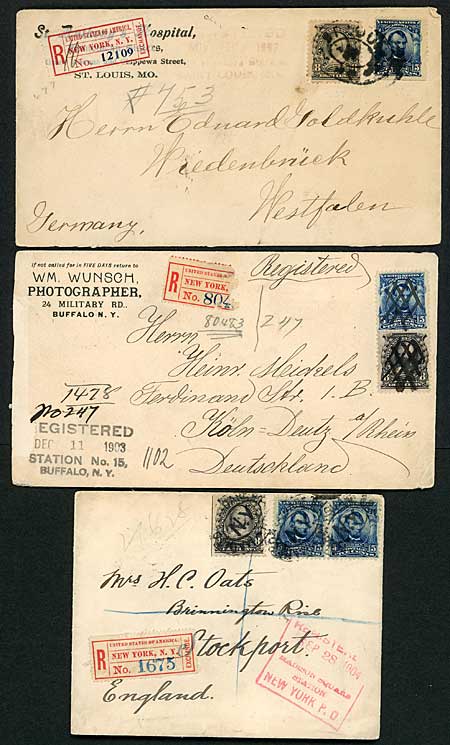 St. Hospital,
Chippewa Street,
ST. LOUIS, MO.
UNITED STATES OF AMERICA.
R NEW YORK, N. Y. EXCHANGE
No. 12109
#753
Herrn Eduard Goldkuhle
Wiedenbrück
Westfalen
Germany.
If not called for in FIVE DAYS return to
WM. WUNSCH,
PHOTOGRAPHER,
24 MILITARY RD.
BUFFALO N. Y.
UNITED STATES
R NEW YORK,
No. 804
Registered
80483
247
Herrn
Heinr. Meickels
Ferdinand Str. 1. B.
Köln-Deutz a/Rhein
Deutschland
1478
No 247
REGISTERED
DEC 11 1903
STATION No. 15,
BUFFALO, N. Y.
1102
N.Y.
Mrs H. C. Oats
Brinnington Rise
Stockport.
England.
UNITED STATES OF AMERICA.
R NEW YORK, N. Y. EXCHANGE
No. 1675
REGISTERED
SEP 28 1904
MADISON SQUARE
STATION
NEW YORK P. O.